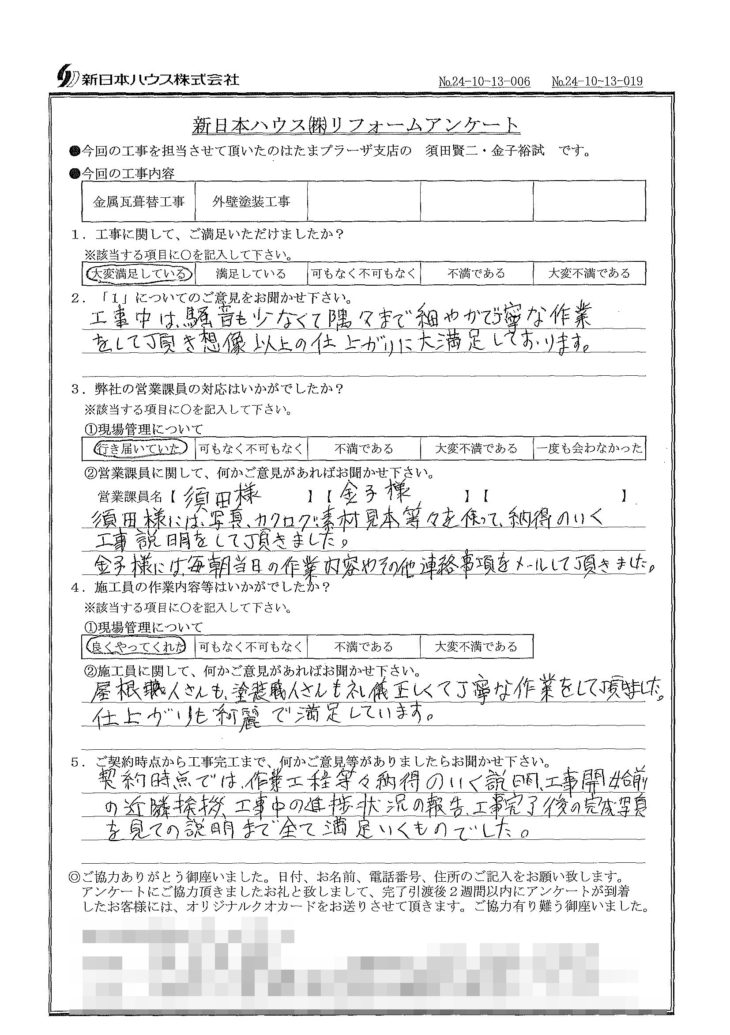 新日本ハウス株式会社 №24-10-13-006 №24-10-13-019
新日本ハウス㈱リフォームアンケート
●今回の工事を担当させて頂いたのはたまプラーザ支店の 須田賢二・金子裕試 です。
●今回の工事内容
金属瓦葺替工事 外壁塗装工事
1．工事に関して、ご満足いただけましたか？
※該当する項目に○を記入して下さい。
大変満足している 満足している 可もなく不可もなく 不満である 大変不満である
2．「1」についてのご意見をお聞かせ下さい。
工事中は、騒音も少なくて隅々まで細やかで丁寧な作業
をして頂き想像以上の仕上がりに大満足しております。
3．弊社の営業課員の対応はいかがでしたか？
※該当する項目に○を記入して下さい。
①現場管理について
行き届いていた 可もなく不可もなく 不満である 大変不満である 一度も会わなかった
②営業課員に関して、何かご意見があればお聞かせ下さい。
営業課員名【 須田様 】【 金子様 】【 】
須田様には、写真、カタログ、素材見本等々を使って、納得のいく
工事説明をして頂きました。
金子様には毎朝当日の作業内容やその他連絡事項をメールして頂きました。
4．施工員の作業内容等はいかがでしたか？
※該当する項目に○を記入して下さい。
①現場管理について
良くやってくれた 可もなく不可もなく 不満である 大変不満である
②施工員に関して、何かご意見があればお聞かせ下さい。
屋根職人さんも、塗装職人さんも礼儀正しくて丁寧な作業をして頂きました。
仕上がりも綺麗で満足しています。
5．ご契約時点から工事完工まで、何かご意見等がありましたらお聞かせ下さい。
契約時点では、作業工程等々納得のいく説明、工事開始前
の近隣挨拶、工事中の進捗状況の報告、工事完了後の完成写真
を見ての説明まで全て満足いくものでした。
◎ご協力ありがとう御座いました。日付、お名前、電話番号、住所のご記入をお願い致します。
アンケートにご協力頂きましたお礼と致しまして、完了引渡後２週間以内にアンケートが到着
したお客様には、オリジナルクオカードをお送りさせて頂きます。ご協力有り難う御座いました。